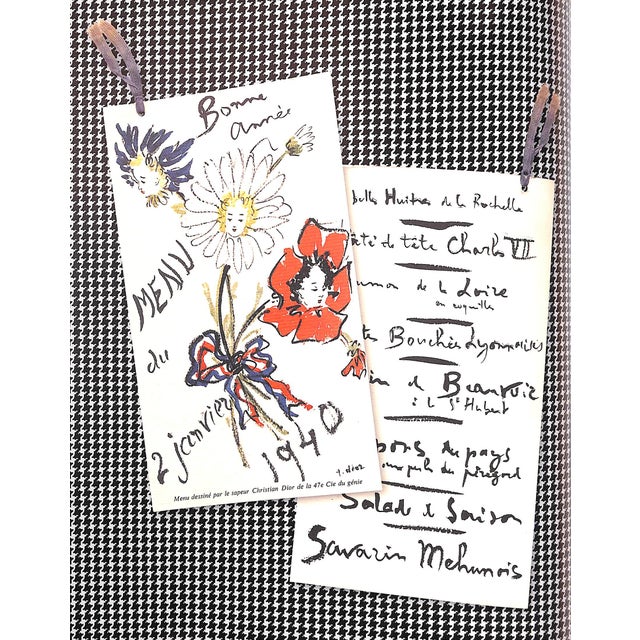 Bonne
année
MENU
du
2 janvier
1940
Menu destiné par le sapeur Christian Dior de la 47e Cie du génie
belles Huitres de la Rochelle
de tête Charles VII
de la Loire
en coquille
Bouchées Lyonnaises
de Beauvoir
à la St Hubert
du pays
du périgord
Salade de Saison
Savarin Mehunois